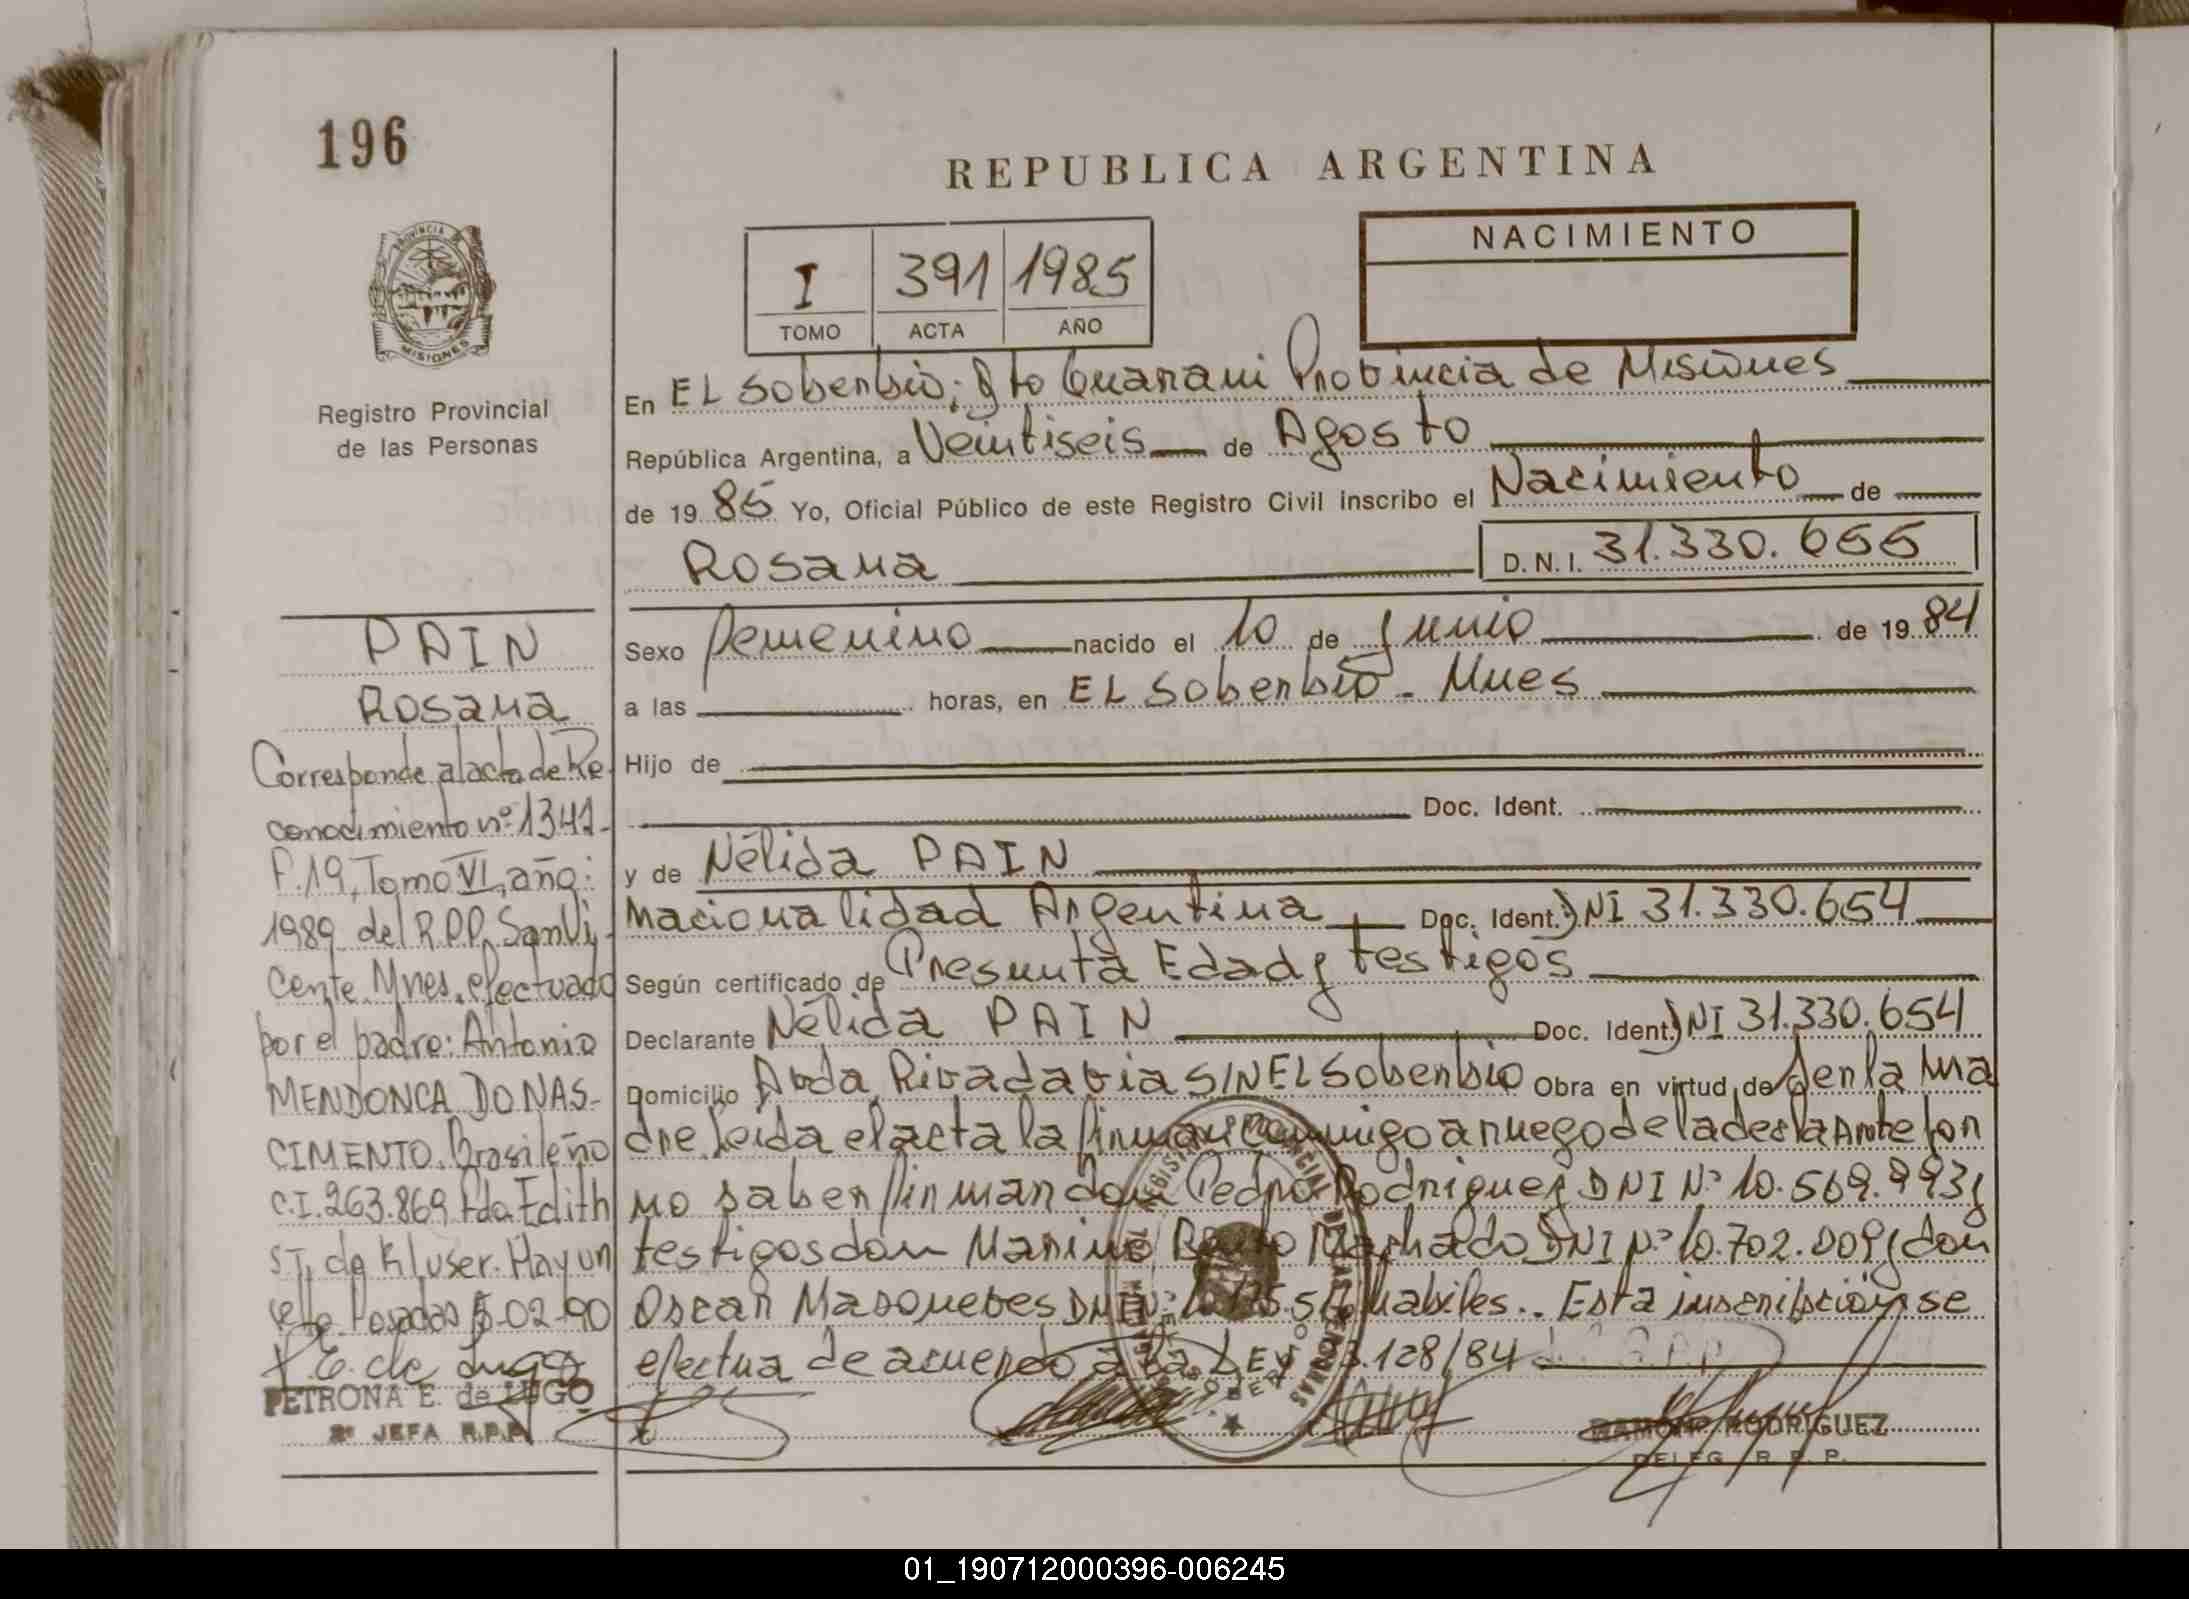 196
REPUBLICA ARGENTINA
PROVINCIA DE
MISIONES
Registro Provincial
de las Personas
I 391 1985
TOMO ACTA AÑO
NACIMIENTO
En EL Soberbio; Dto Guarani Provincia de Misiones
República Argentina, a Veintiseis de Agosto
de 19 85 Yo, Oficial Público de este Registro Civil inscribo el Nacimiento de
Rosana D.N.I. 31.330.655
Sexo femenino nacido el 10 de Junio de 19 84
a las horas, en EL Soberbio - Mnes
Hijo de
Doc. Ident.
y de Nélida PAIN
nacionalidad Argentina Doc. Ident. DNI 31.330.654
Según certificado de Presunta Edad y testigos
Declarante Nélida PAIN Doc. Ident. DNI 31.330.654
Domicilio Avda Rivadavia S/N EL Soberbio Obra en virtud de ser la ma
dre. Leida el acta la firman conmigo a ruego de la declarante por
no saber firmar don Pedro Rodriguez DNI Nº 10.569.993 y
testigos don Marino Machado DNI Nº 10.702.009 y don
Oscar Masoneves habiles.. Esta inscripción se
efectua de acuerdo a la LEY 3.128/84
RAMON RODRIGUEZ
DELEG. R. P. P.
PAIN
Rosana
Corresponde al acta de Re
conocimiento nº 1341-
F.19, Tomo VI, año:
1989 del R.P.P. San Vi
cente. Mnes. efectuado
por el padre: Antonio
MENDONCA DO NAS-
CIMENTO. Brasileño
C.I. 263.869 Fdo. Edith
ST. de Kluser. Hay un
sello Posadas 5-02-90
P.E. de Lugo
PETRONA E. de LUGO
2ª JEFA R.P.P.
01_190712000396-006245